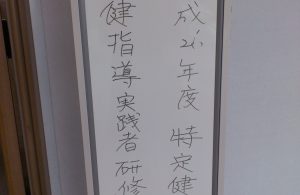 成26年度 特定健
健指導実践者研修